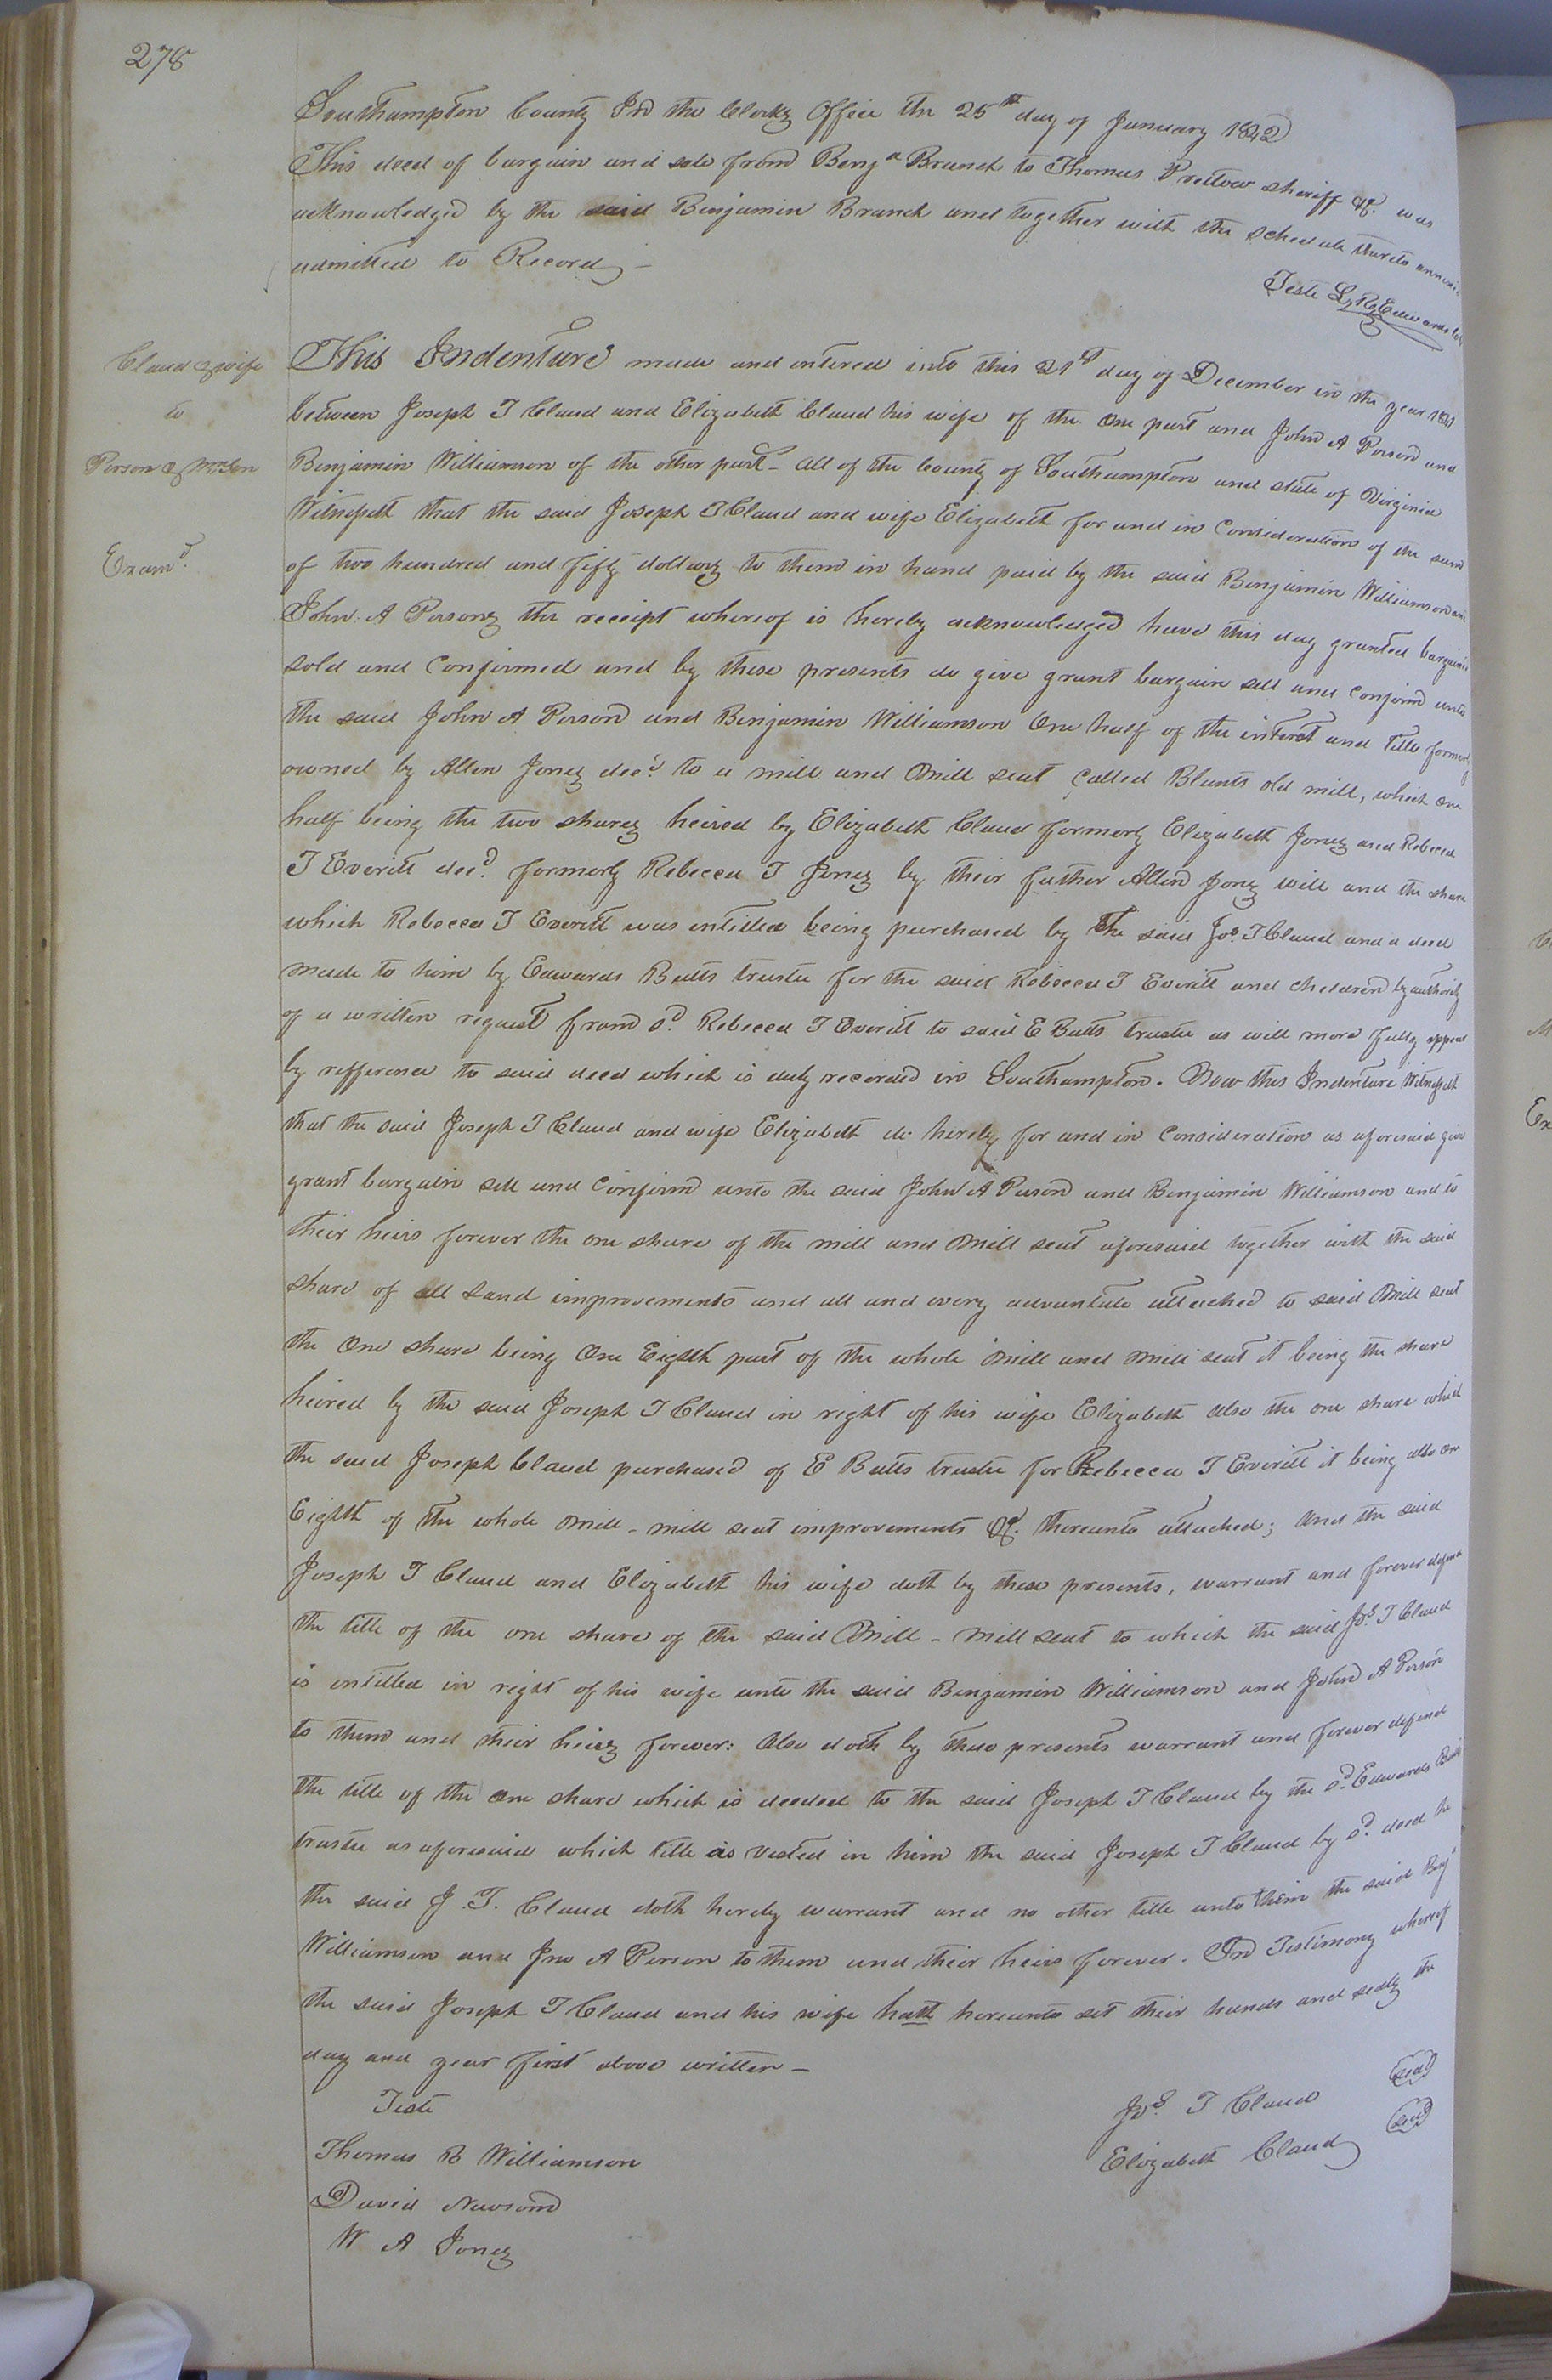 278
Southampton County In the Clerks Office the 25th day of January 1842
This deed of bargain and sale from Benja Branch to Thomas Pretlow sheriff &c. was
acknowledged by the said Benjamin Branch and together with the schedule thereto annexed
admitted to Record –
Teste L. R. Edwards
Claud & wife
to
Person & Wmson
Examd.
This Indenture made and entered into this 21st day of December in the year 1841
between Joseph T Claud and Elizabeth Claud his wife of the one part and John A Person and
Benjamin Williamson of the other part – all of the County of Southampton and state of Virginia
Witnesseth that the said Joseph T Claud and wife Elizabeth for and in Consideration of the sum
of two hundred and fifty dollars to them in hand paid by the said Benjamin Williamson and
John. A Persons the receipt whereof is hereby acknowledged have this day granted bargained
sold and Confirmed and by these presents do give grant bargain sell and Confirm unto
the said John A Person and Benjamin Williamson One half of the interest and title formerly
owned by Allen Jones decd. to a mill and Mill seat Called Blunts old mill, which one
half being the two shares heired by Elizabeth Claud formerly Elizabeth Jones and Rebecca
T Everitt decd. formerly Rebecca T Jones by their father Allen Jones will and the share
which Rebecca T Everitt was entitled being purchased by The said Jos. T Claud and a deed
made to him by Edwards Butts trustee for the said Rebecca T Everitt and children by authority
of a written request from sd. Rebecca T Everitt to said E Butts trustee as will more fully appear
by refference to said deed which is duly recorded in Southampton. Now this Indenture Witnesseth
that the said Joseph T Claud and wife Elizabeth do hereby for and in Consideration as aforesaid give
grant bargain sell and Confirm unto the said John A Person and Benjamin Williamson and to
their heirs forever the one share of the mill and Mill seat aforesaid together with the said
share of all Land improvements and all and every advantate attached to said Mill seat
the One share being One Eighth part of the whole Mill and Mill seat it being the share
heired by the said Joseph T Claud in right of his wife Elizabeth also the one share which
the said Joseph Claud purchased of E Butts trustee for Rebecca T Everitt it being also one
Eighth of the whole Mill – mill seat improvements &c. thereunto attached; And the said
Joseph T Claud and Elizabeth his wife doth by these presents, warrant and forever defend
the title of the one share of the said Mill – Mill seat to which the said Jos. T Claud
is entitled in right of his wife unto the said Benjamin Williamson and John A Person
to them and their heirs forever: Also doth by these presents warrant and forever defend
the title of the one share which is deeded to the said Joseph T Claud by the sd. Edwards Butts
trustee as aforesaid which title is vested in him the said Joseph T Claud by sd. deed he
the said J. T. Claud doth hereby warrant and no other title unto them the said Benj
Williamson and Jno A Person to them and their heirs forever. In Testimony whereof
the said Joseph T Claud and his wife hath hereunto set their hands and seals the
day and year first above written –
Teste
Thomas B Williamson
David Newsom
W A Jones
Jos. T Claud seal
Elizabeth Claud seal